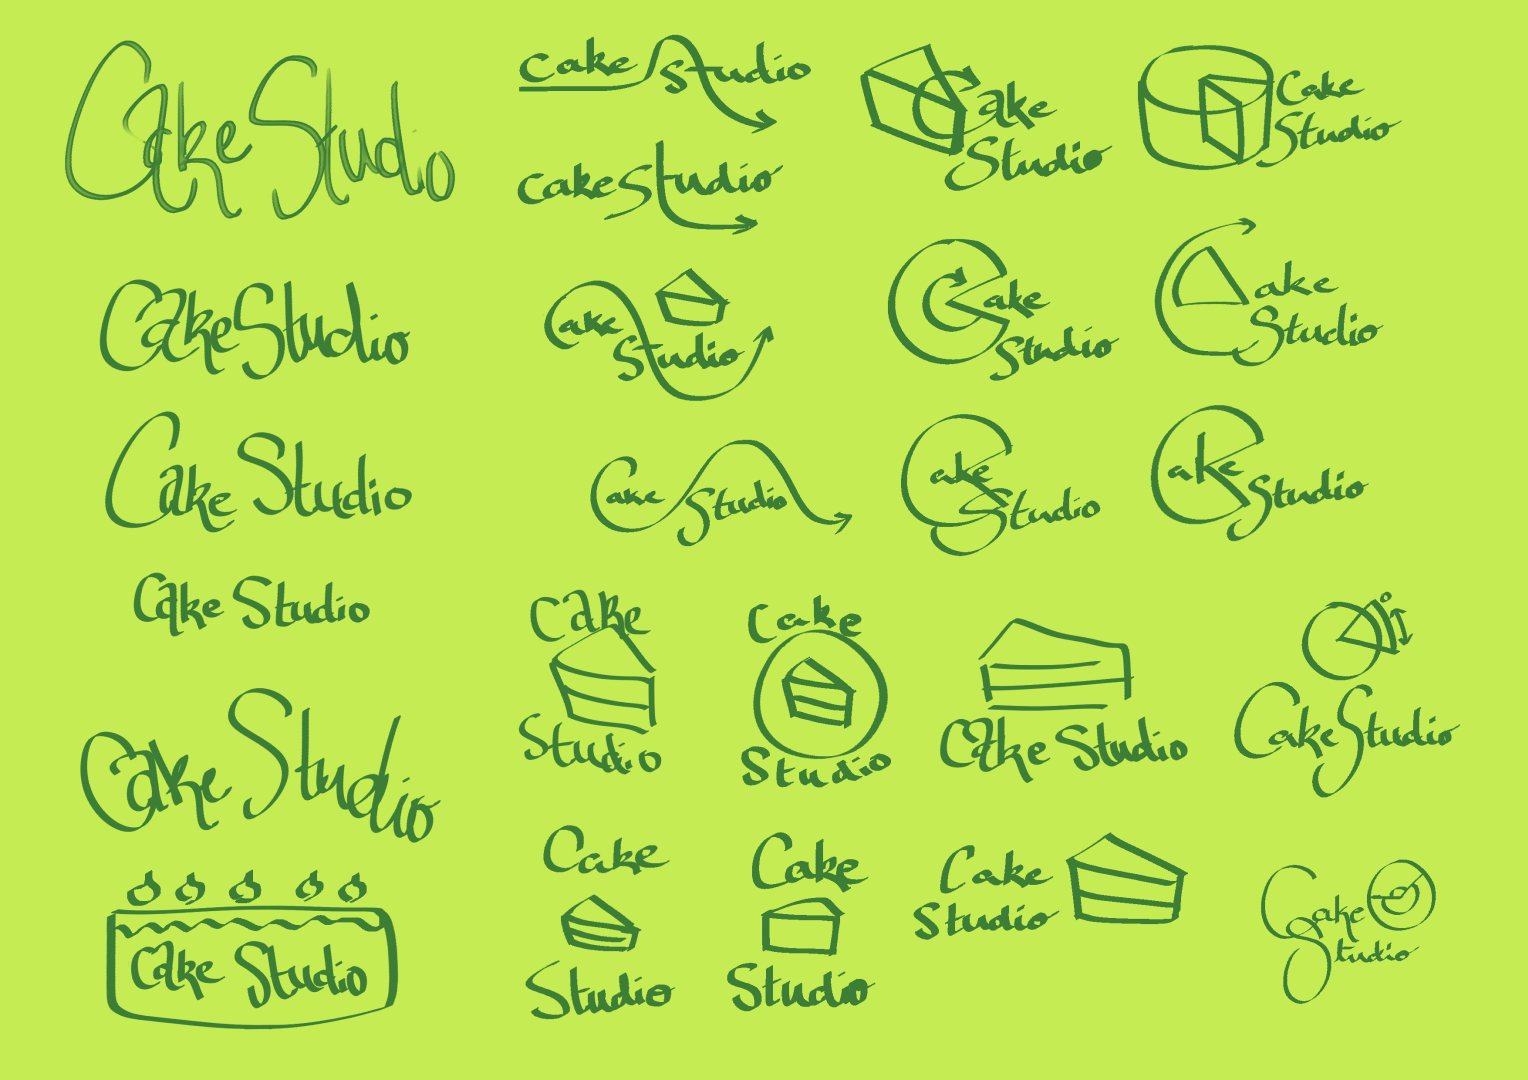 Cake Studio
Cake Studio
Cake Studio
Cake Studio
Cake Studio
Cake Studio
Cake Studio
Cake Studio
Cake
Studio
Cake
Studio
Cake
Studio
Cake
Studio
Cake Studio
Cake
Studio
Cake
Studio
Cake
Studio
Cake
Studio
Cake
Studio
Cake
Studio
Cake Studio
Cake Studio
Cake
Studio
Cake
Studio
Cake
Studio
Cake
Studio